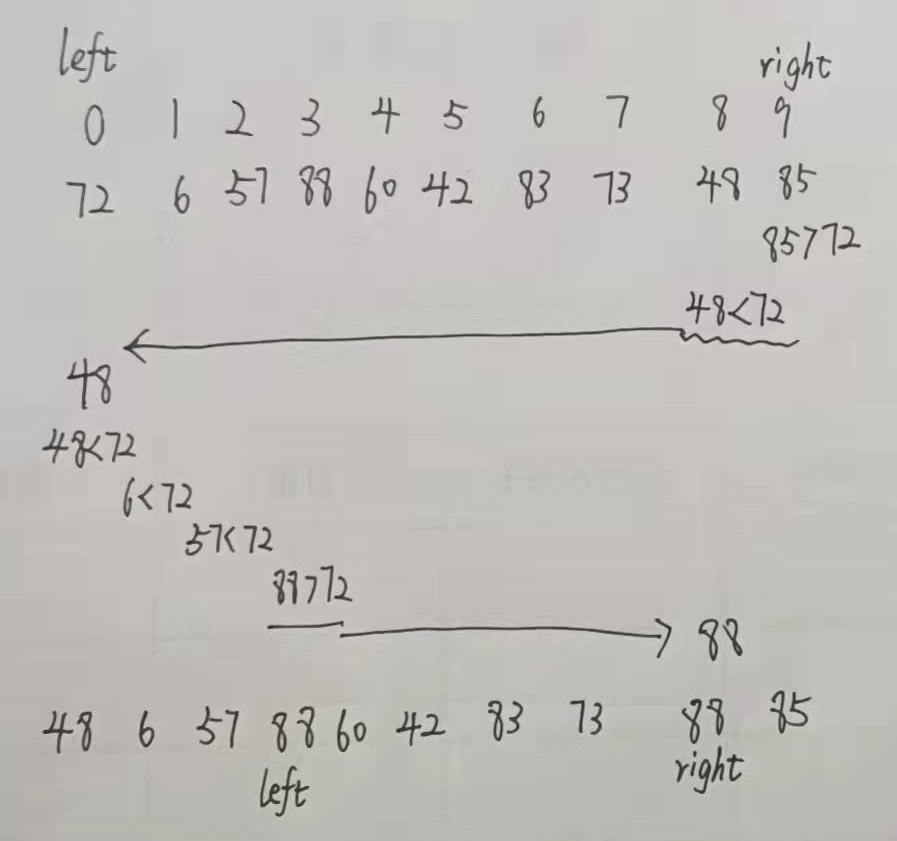 left
right
0 1 2 3 4 5 6 7 8 9
72 6 57 88 60 42 83 73 48 85
85>72
48<72
48
48<72
6<72
57<72
88>72
88
48 6 57 88 60 42 83 73 88 85
left right